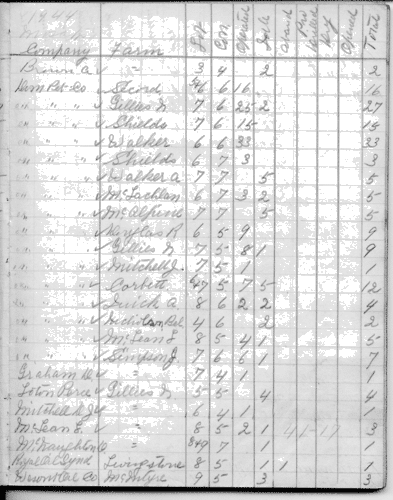 Company Farm Lot Con Operated Idle Aband Total
Brown A. ✓ " 3 4 2 2
Dom Pet. Co ✓ 6 6 16 16
" " " ✓ Gillies N 7 6 25 2 27
" " " ✓ Shields 7 6 15 15
" " " ✓ Walker 6 6 33 33
" " " ✓ Shields 6 7 3 3
" " " ✓ Walker A 7 7 5 5
" " " ✓ McLachlan 6 7 3 2 5
" " " ✓ McAlpine 7 7 5 5
" " " ✓ 6 5 9 9
" " " ✓ Gillies N 7 5 8 1 9
" " " ✓ Mitchell J. 7 5 1 1
" " " ✓ Corbett 5 7 5 12
" " " ✓ 8 6 2 2 4
" " " ✓ 4 6 2 2
" " " ✓ McLean L 8 5 4 1 5
" " " ✓ Simpson J. 7 6 6 1 7
Graham D. ✓ " 7 4 1 1
✓ Gillies N 5 5 4 4
Mitchell J ✓ " 6 4 1 1
McLean L ✓ " 8 5 2 1 3
McNaughton ✓ " 7 1 1
Livingstone 8 5 1 1
McIntyre 9 5 3 3